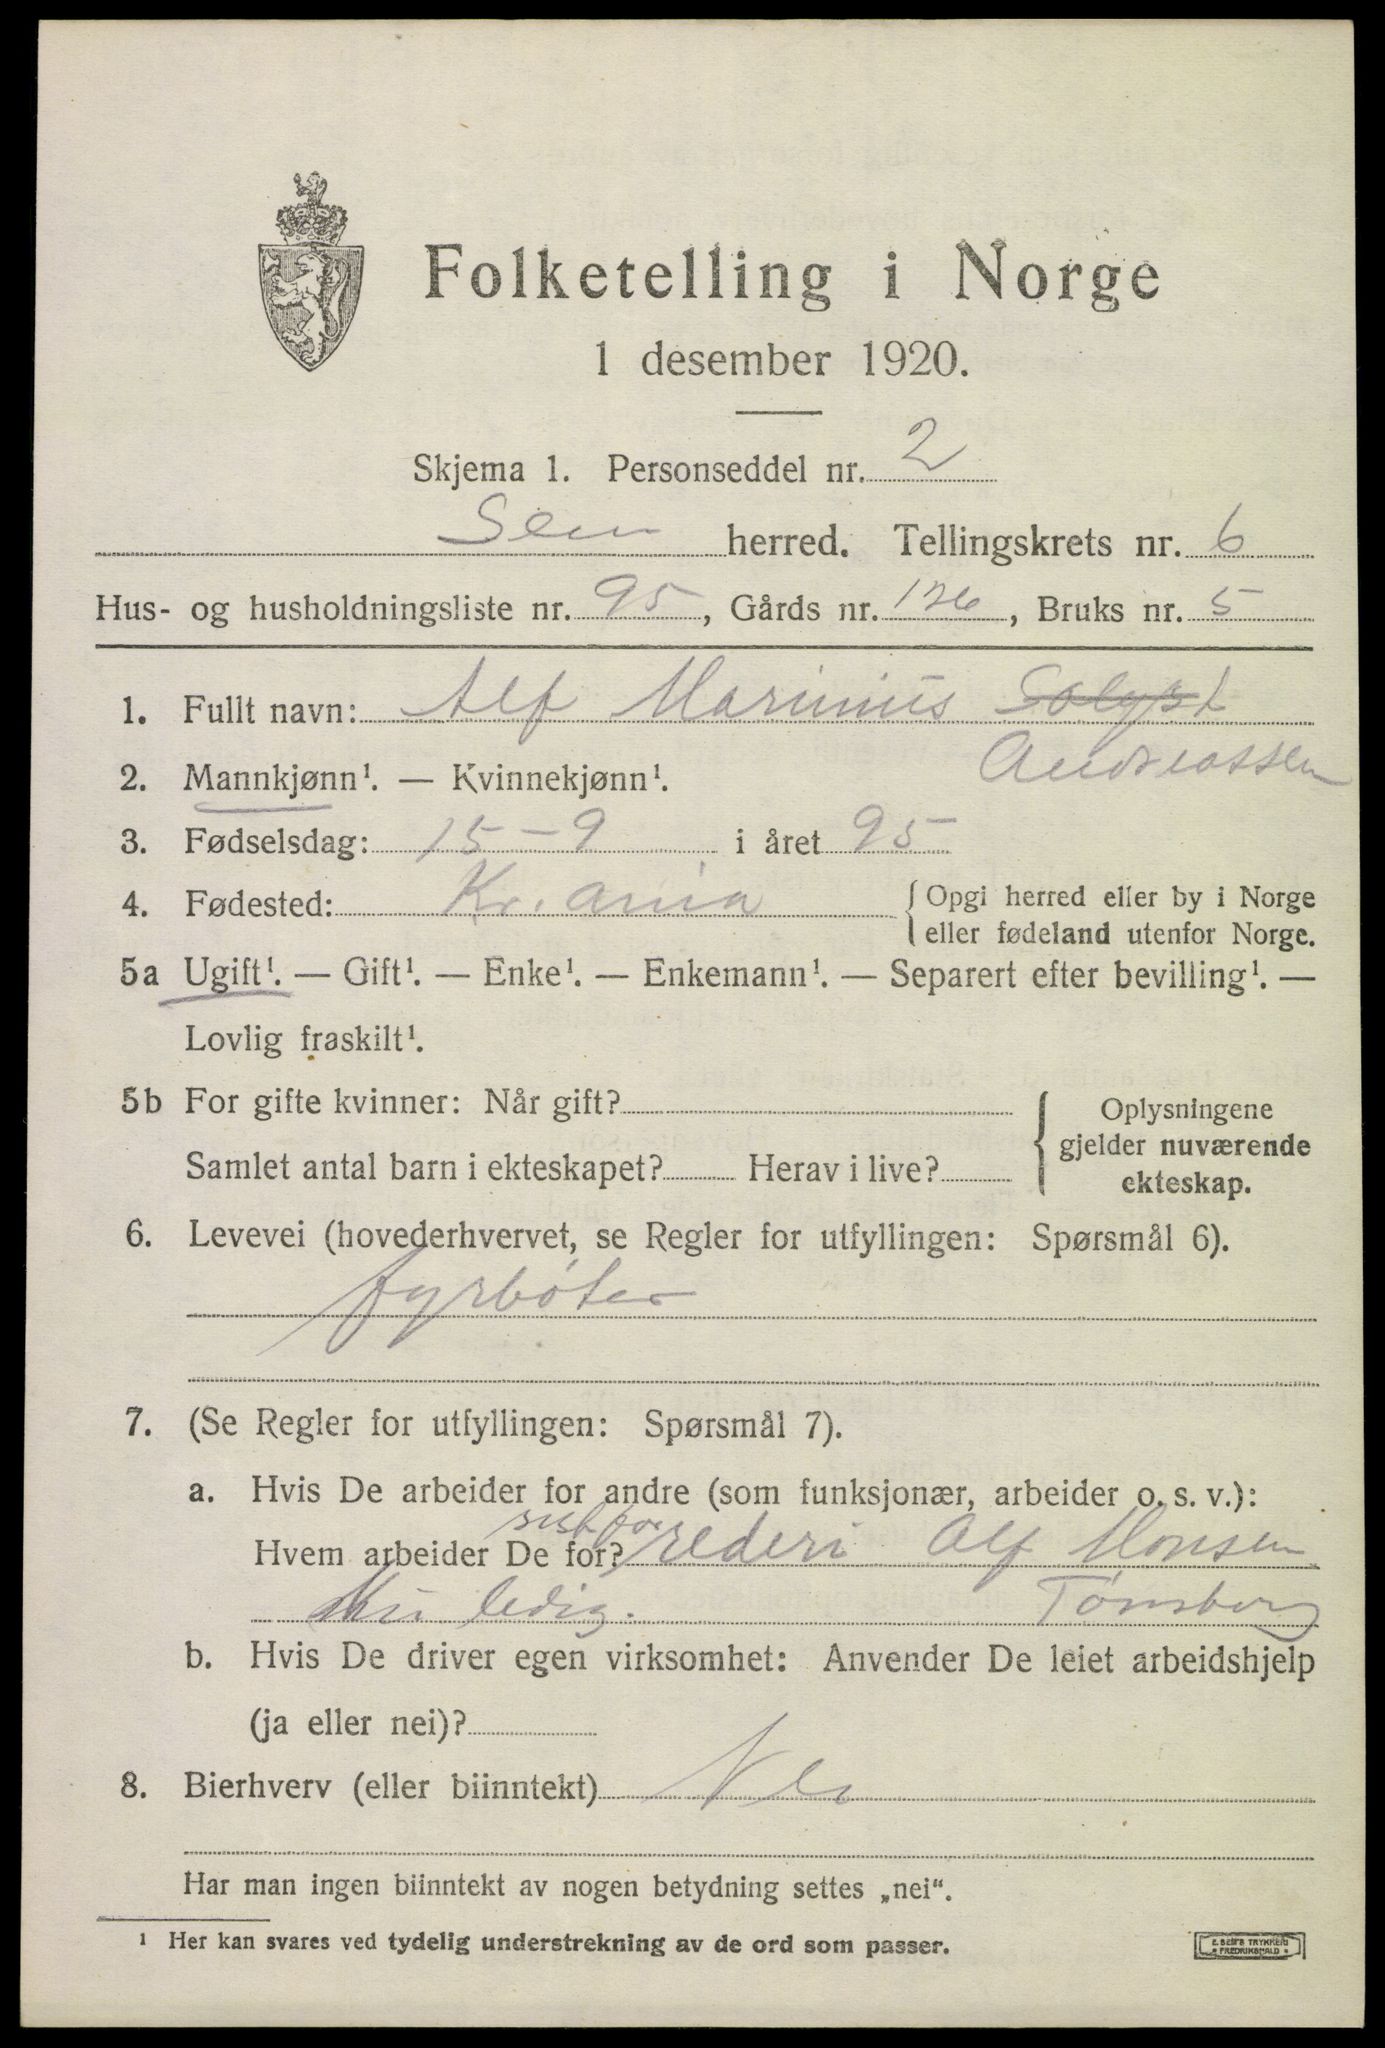 Folketelling i Norge
1 desember 1920.
Skjema 1. Personseddel nr. 2
Sem herred. Tellingskrets nr. 6
Hus- og husholdningsliste nr. 95, Gårds nr. 126, Bruks nr. 5
1. Fullt navn: Alf Marinius Solyst
Andreassen
2. Mannkjønn¹. — Kvinnekjønn¹.
3. Fødselsdag: 15-9 i året 95
4. Fødested: Kr. ania { Opgi herred eller by i Norge
eller fødeland utenfor Norge.
5a Ugift¹. — Gift¹. — Enke¹. — Enkemann¹. — Separert efter bevilling¹. —
Lovlig fraskilt¹.
5b For gifte kvinner: Når gift?
Samlet antal barn i ekteskapet? Herav i live?
Oplysningene
gjelder nuværende
ekteskap.
6. Levevei (hovederhvervet, se Regler for utfyllingen: Spørsmål 6).
fyrbøter
7. (Se Regler for utfyllingen: Spørsmål 7).
a. Hvis De arbeider for andre (som funksjonær, arbeider o. s. v.):
sist for
Hvem arbeider De for? rederi Alf Monsen
Nu ledig. Tønsberg
b. Hvis De driver egen virksomhet: Anvender De leiet arbeidshjelp
(ja eller nei)?
8. Bierhverv (eller biinntekt) Nei
Har man ingen biinntekt av nogen betydning settes „nei".
¹ Her kan svares ved tydelig understrekning av de ord som passer.
E. SEM'S TRYKKERI
FREDRIKSHALD